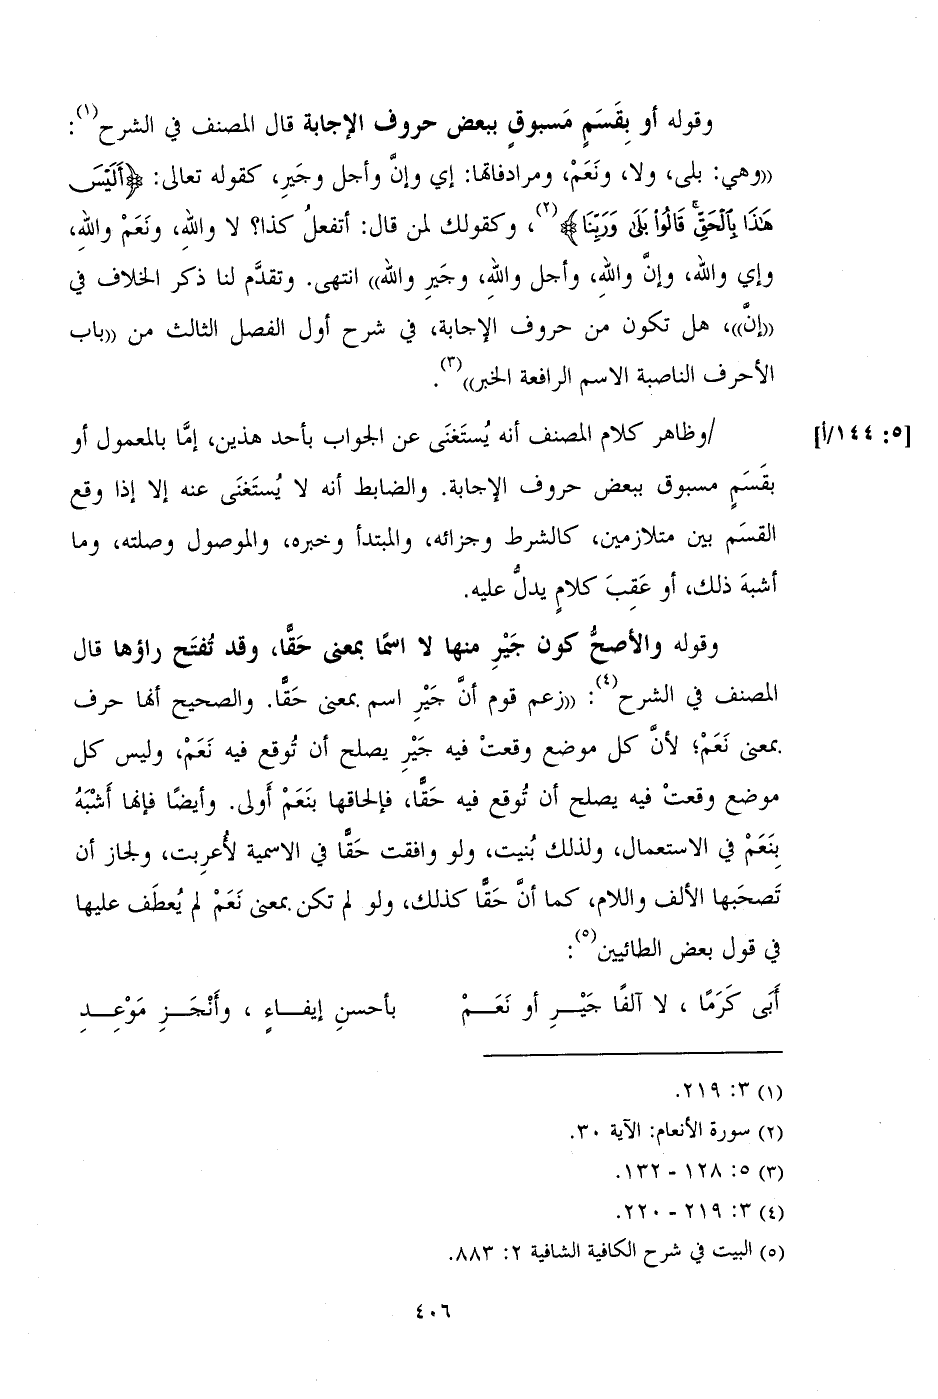 وقوله أو بِقَسَمٍ مَسبوقٍ ببعض حروف الإجابة قال المصنف في الشرح(١):
((وهي: بلى، ولا، ونَعَمْ، ومرادفاتها: إي وإنَّ وأجل وجَيرِ، كقوله تعالى: ﴿أَلَيْسَ
هَٰذَا بِٱلْحَقِّ ۚ قَالُوا۟ بَلَىٰ وَرَبِّنَا﴾(٢)، وكقولك لمن قال: أتفعلُ كذا؟ لا واللهِ، ونَعَمْ واللهِ،
وإي واللهِ، وإنَّ واللهِ، وأجل واللهِ، وجَيرِ واللهِ)) انتهى. وتقدَّم لنا ذكر الخلاف في
((إنَّ))، هل تكون من حروف الإجابة، في شرح أول الفصل الثالث من ((باب
الأحرف الناصبة الاسم الرافعة الخبر))(٣).
/وظاهر كلام المصنف أنه يُستَغنَى عن الجواب بأحد هذين، إمَّا بالمعمول أو [٥: ١٤٤/أ]
بقَسَمٍ مسبوق ببعض حروف الإجابة. والضابط أنه لا يُستَغنَى عنه إلا إذا وقع
القسَم بين متلازمين، كالشرط وجزائه، والمبتدأ وخبره، والموصول وصلته، وما
أشبهَ ذلك، أو عَقِبَ كلامٍ يدلُّ عليه.
وقوله والأصحُّ كون جَيْرِ منها لا اسمًا بمعنى حَقًّا، وقد تُفتَح راؤها قال
المصنف في الشرح(٤): ((زعم قوم أنَّ جَيْرِ اسم بمعنى حَقًّا. والصحيح أنها حرف
بمعنى نَعَمْ؛ لأنَّ كل موضع وقعتْ فيه جَيْرِ يصلح أن تُوقع فيه نَعَمْ، وليس كل
موضع وقعتْ فيه يصلح أن تُوقع فيه حَقًّا، فإلحاقها بنَعَمْ أَولى. وأيضًا فإنها أَشْبَهُ
بِنَعَمْ في الاستعمال، ولذلك بُنيت، ولو وافقت حَقًّا في الاسمية لأُعرِبت، ولجاز أن
تَصحَبها الألف واللام، كما أنَّ حَقًّا كذلك، ولو لم تكن بمعنى نَعَمْ لم يُعطَف عليها
في قول بعض الطائيين(٥):
أَبَى كَرَمًا ، لا آلفًا جَيْـــرِ أو نَعَـــمْ بأحسنِ إيفـــاءٍ ، وأَنْجَـــزِ مَوْعِـــدِ
(١) ٣: ٢١٩.
(٢) سورة الأنعام: الآية ٣٠.
(٣) ٥: ١٢٨ - ١٣٢.
(٤) ٣: ٢١٩ - ٢٢٠.
(٥) البيت في شرح الكافية الشافية ٢: ٨٨٣.
٤٠٦